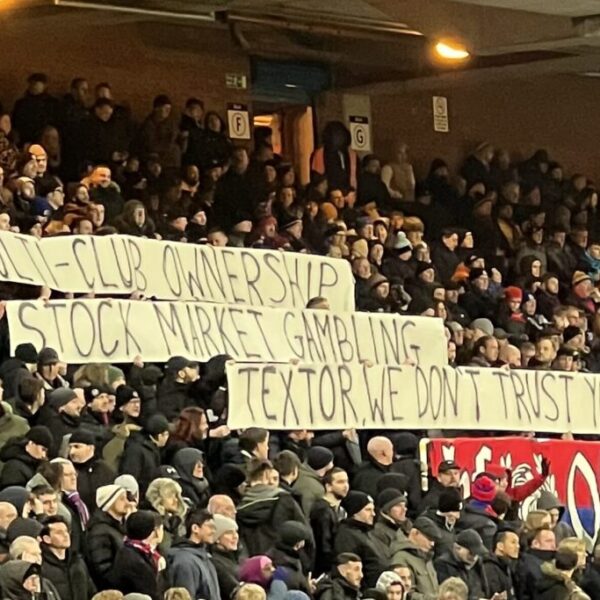 F
G
LTI-CLUB OWNERSHIP
STOCK MARKET GAMBLING
TEXTOR, WE DON'T TRUST Y